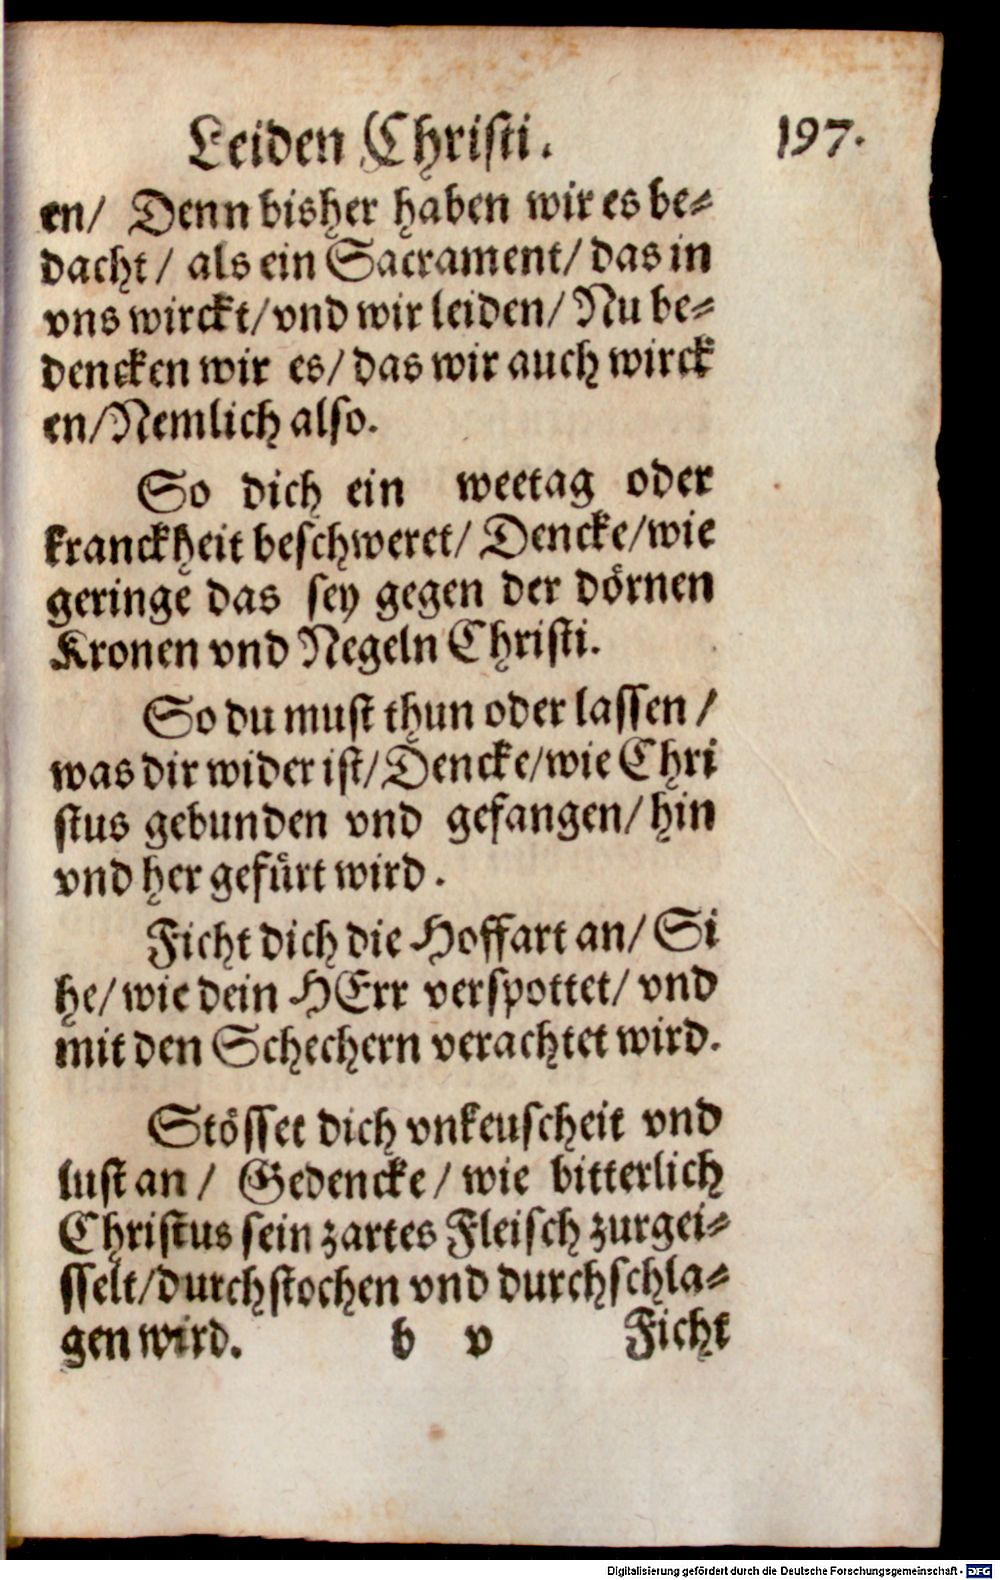 Leiden Christi. 197.
en/ Denn bisher haben wir es be⸗
dacht/ als ein Sacrament/ das in
vns wirckt/ vnd wir leiden/ Nu be⸗
dencken wir es/ das wir auch wirck
en/ Nemlich also.
So dich ein weetag oder
kranckheit beschweret/ Dencke/ wie
geringe das sey gegen der dörnen
Kronen vnd Negeln Christi.
So du must thun oder lassen/
was dir wider ist/ Dencke/ wie Chri
stus gebunden vnd gefangen/ hin
vnd her gefürt wird.
Ficht dich die Hoffart an/ Si
he/ wie dein HErr verspottet/ vnd
mit den Schechern verachtet wird.
Stösset dich vnkeuscheit vnd
lust an/ Gedencke/ wie bitterlich
Christus sein zartes Fleisch zurgei⸗
sselt/ durchstochen vnd durchschla⸗
gen wird. b v Ficht
Digitalisierung gefördert durch die Deutsche Forschungsgemeinschaft - DFG